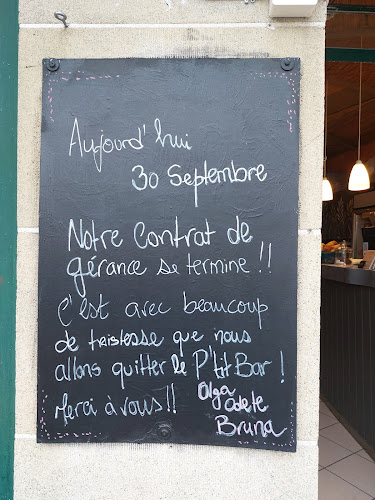 Aujourd'hui
30 Septembre
Notre Contrat de
gérance se termine !!
C'est avec beaucoup
de tristesse que nous
allons quitter le P'tit Bar !
Merci à vous !!
Olga
Odete
Bruna